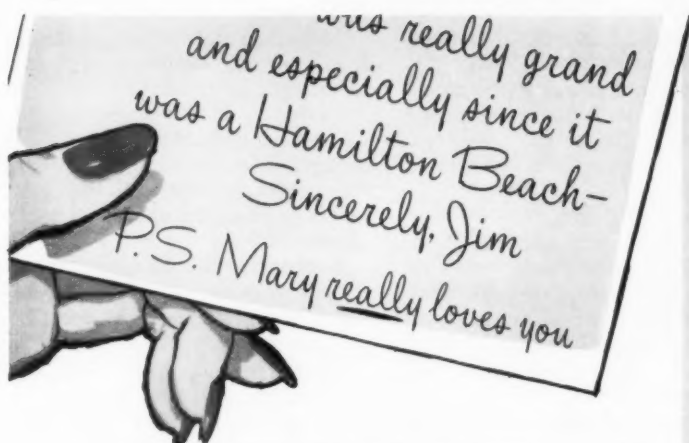 was really grand
and especially since it
was a Hamilton Beach–
Sincerely, Jim
P.S. Mary really loves you